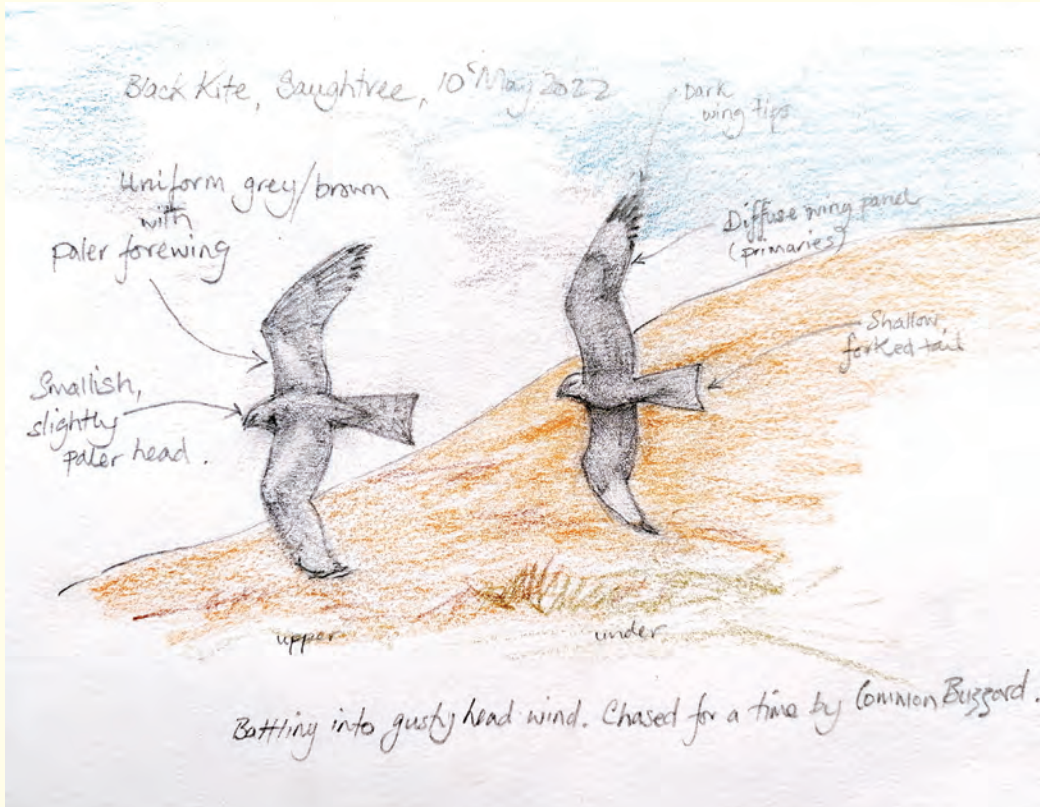 Black Kite, Saughtree, 10 May 2022
Dark
wing tips
Uniform grey/brown
with
paler forewing
Diffuse wing panel
(primaries)
Shallow,
forked tail
Smallish,
slightly
paler head.
upper
under
Battling into gusty head wind. Chased for a time by Common Buzzard.